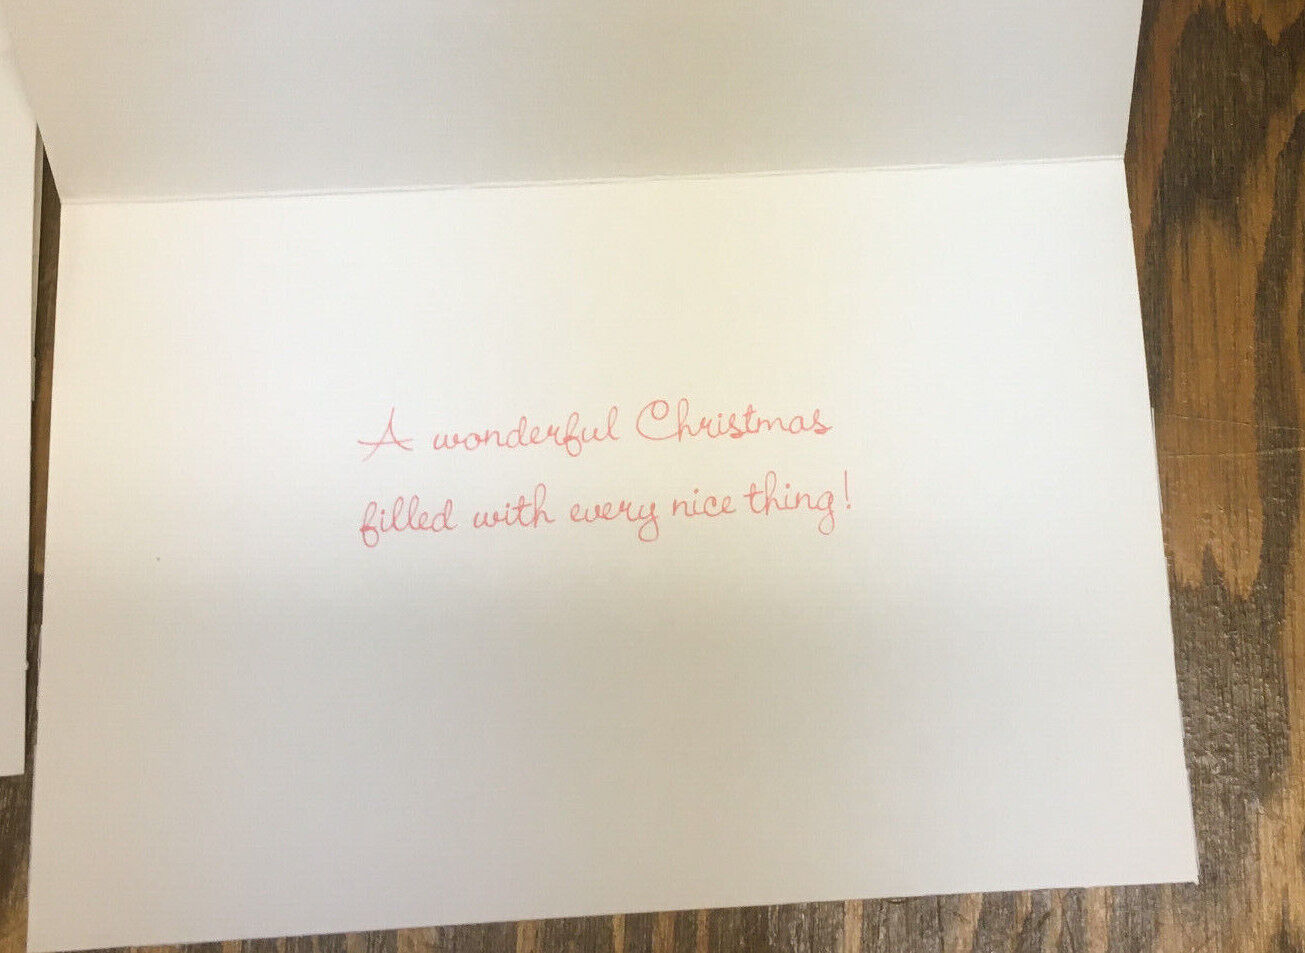 A wonderful Christmas
filled with every nice thing!